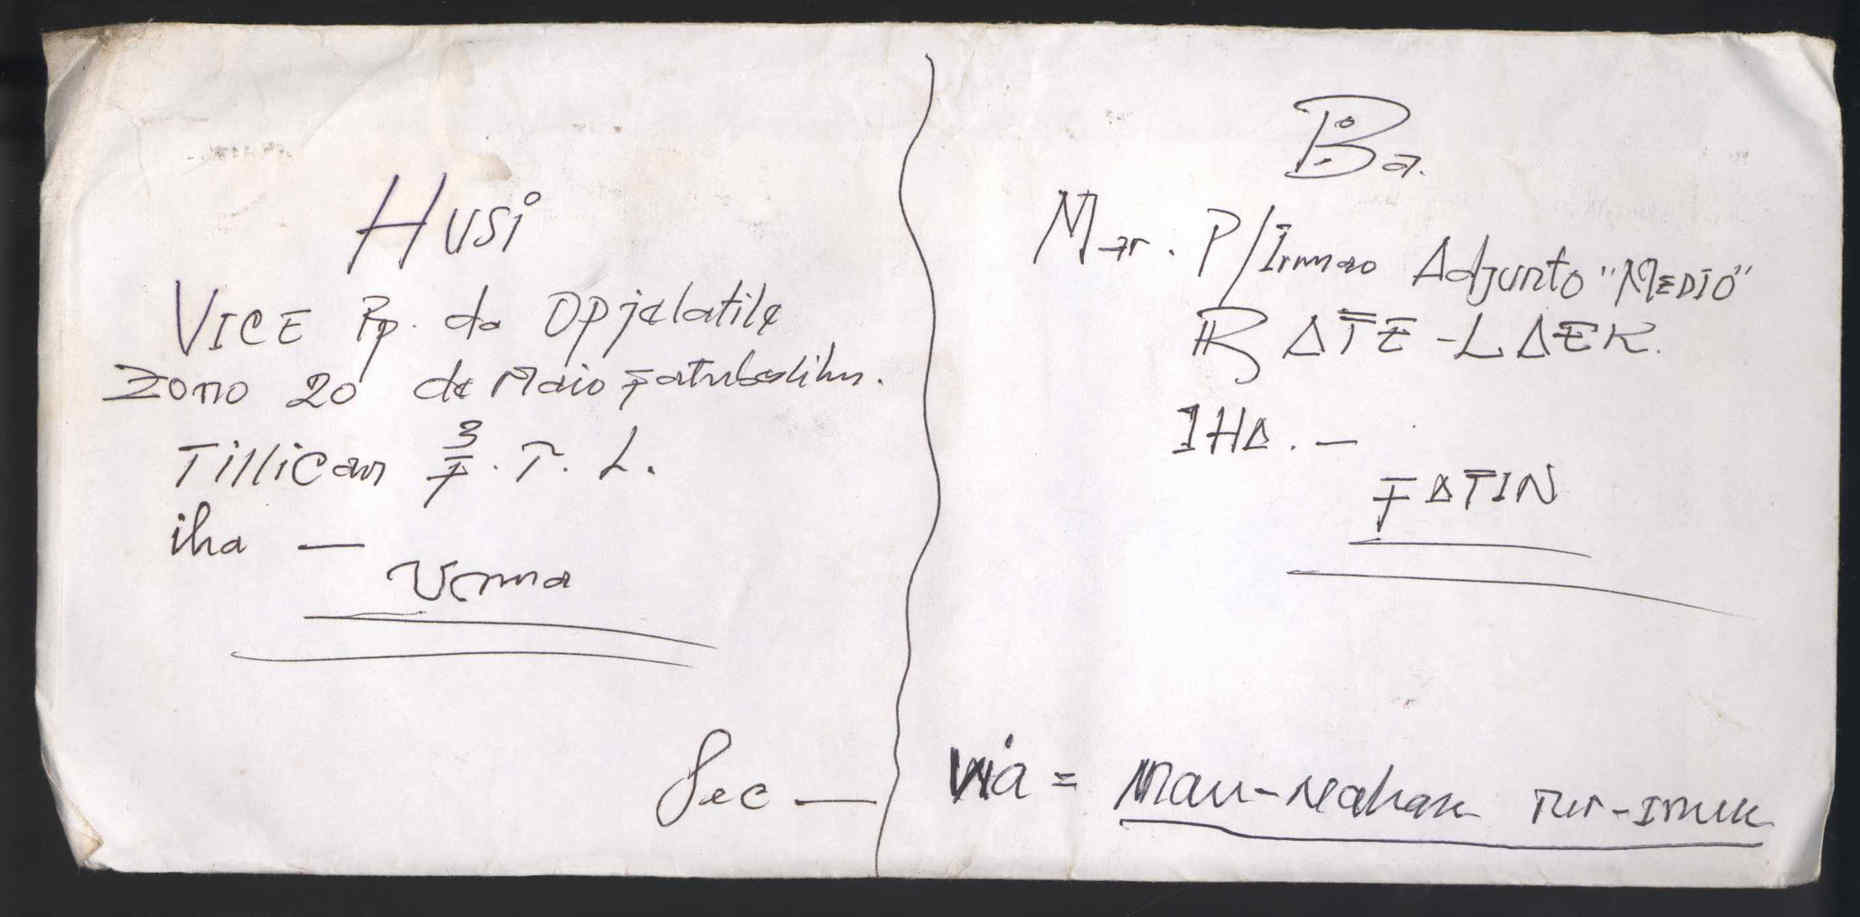 HUSi
VICE Pp. da OPjelatile
Zona 20 de Maio Fatubeslihu.
Tillican 3/F. T. L.
iha —
Uma
Sec —
Ba.
Mar. P/Irmao Adjunto "MEDIO"
RATE-LAEK.
IHA. —
FATIN
via = Mau-Neahask Tur-Imuk